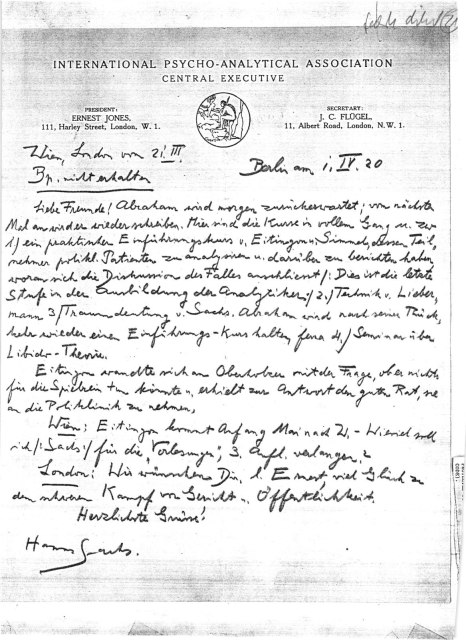 INTERNATIONAL PSYCHO-ANALYTICAL ASSOCIATION
CENTRAL EXECUTIVE
PRESIDENT:
ERNEST JONES,
111, Harley Street, London, W. 1.
SECRETARY:
J. C. FLÜGEL,
11, Albert Road, London, N.W. 1.
Wien, London vom 21. III.
Bp. nicht erhalten
Berlin am 1. IV. 20
Liebe Freunde! Abraham wird morgen zurückerwartet; vom nächsten
Mal an wird er wieder schreiben. Hier sind die Kurse in vollem Gang u. zw.
1/ ein praktischer Einführungskurs v. Eitingon u. Simmel, dessen Teil-
nehmer polikl. Patienten zu analysieren u. darüber zu berichten haben,
woran sich die Diskussion des Falles anschliesst /: Dies ist die letzte
Stufe in der Ausbildung der Analytiker :/ 2/ Technik v. Lieber-
mann 3/ Traumdeutung v. Sachs. Abraham wird nach seiner Rück-
kehr wieder einen Einführungs-Kurs halten, ferner 4/ Seminar über
Libido-Theorie.
Eitingon wandte sich an Oberholzer mit der Frage, ob er nichts
für die Spielrein tun könnte u. erhielt zur Antwort den guten Rat, sie
an die Poliklinik zu nehmen.
Wien: Eitingon kommt Anfang Mai nach W. - Wieviel soll
ich /: Sachs :/ für die "Vorlesungen", 3. Aufl. verlangen?
London: Wir wünschen Dir, l. Ernest, viel Glück zu
dem Kampf vor Gericht u. Öffentlichkeit.
Herzlichste Grüsse!
Hanns Sachs.